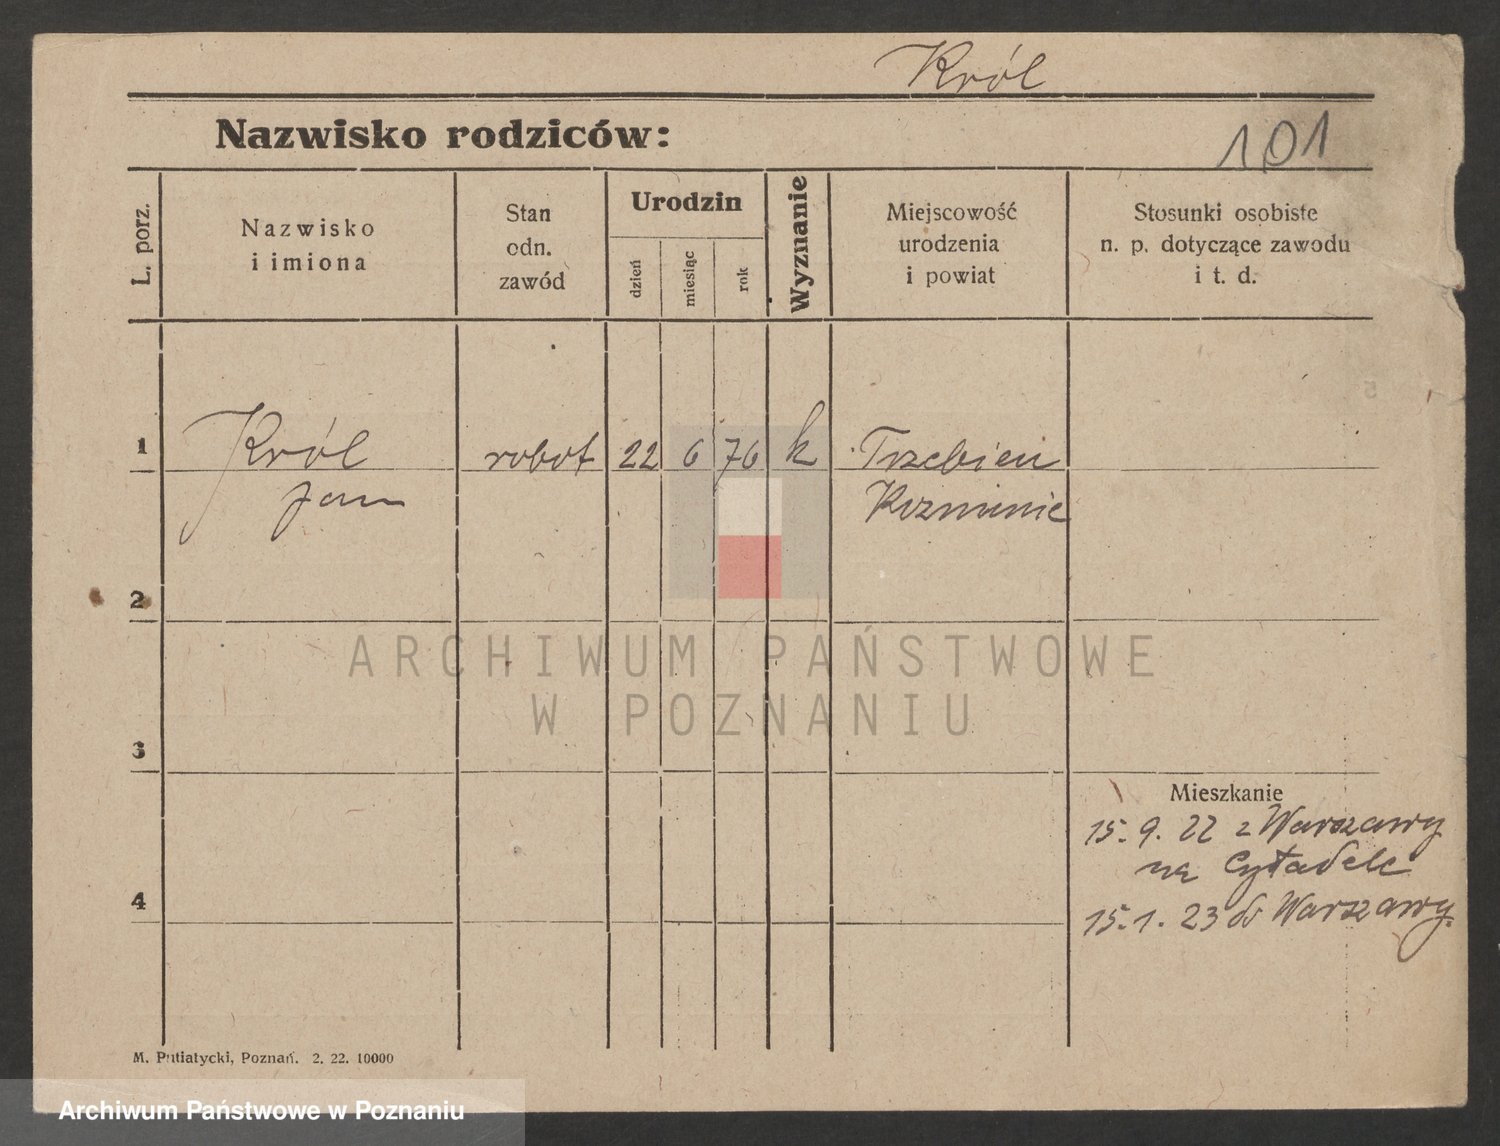 Król
Nazwisko rodziców:
101
L. porz.
Nazwisko
i imiona
Stan
odn.
zawód
Urodzin
dzień
miesiąc
rok
Wyznanie
Miejscowość
urodzenia
i powiat
Stosunki osobiste
n. p. dotyczące zawodu
i t. d.
1
Król
Jan
robot
22
6
76
k
Trzebień
2
3
4
Mieszkanie
15. 9. 22 z Warszawy
na Cytadele
15. 1. 23 do Warszawy.
M. Putiatycki, Poznań. 2. 22. 10000
ARCHIWUM PAŃSTWOWE
W POZNANIU
Archiwum Państwowe w Poznaniu